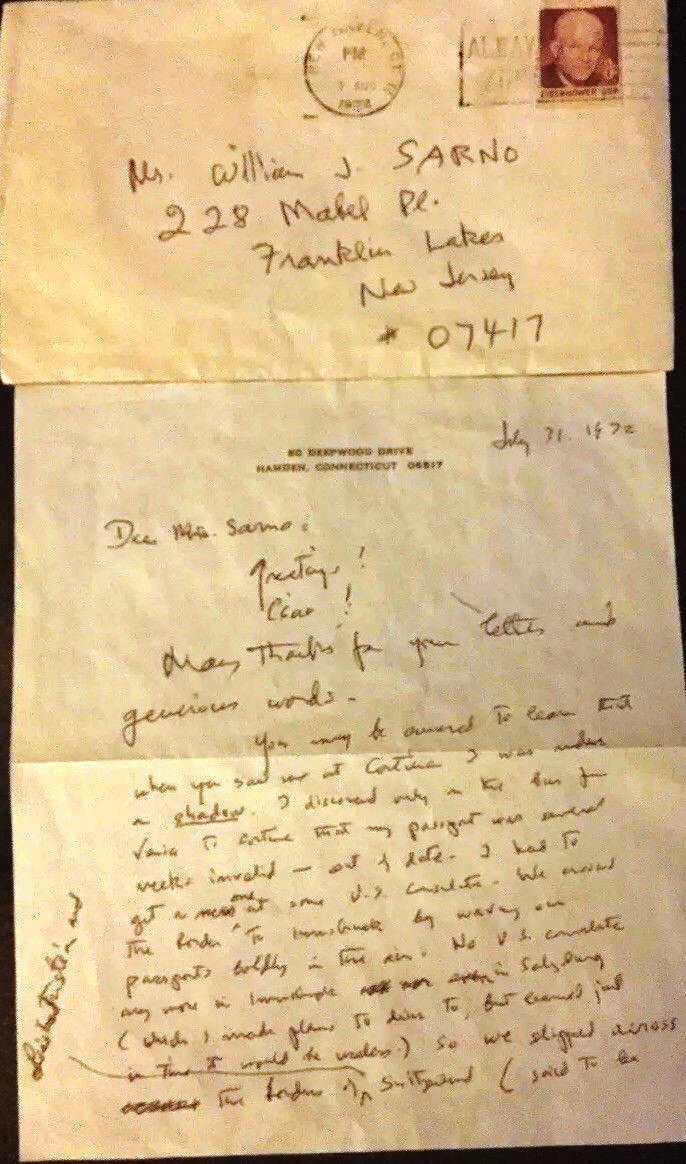 NEW HAVEN, CT
PM
AUG
1972
EISENHOWER USA
Mr. William J. SARNO
228 Mabel Pl.
Franklin Lakes
New Jersey
# 07417
50 DEEPWOOD DRIVE
HAMDEN, CONNECTICUT 06517
July 31. 1972
Dear Mr. Sarno:
Greetings!
Ciao!
Many thanks for your letter and
generous words.
You may be amused to learn that
when you saw me at Cortina I was under
a shadow. I discovered only in the bus from
Venice to Cortina that my passport was several
weeks invalid — out of date. I had to
get a new one at some U.S. Consulate. We crossed
the border to Innsbruck by waving our
passports boldly in the air. No U.S. consulate
any more in Innsbruck in Salzburg
(which I made plans to drive to, but learned just
in time it would be useless.) So we slipped across
the border of Switzerland (said to be
Liechtenstein and